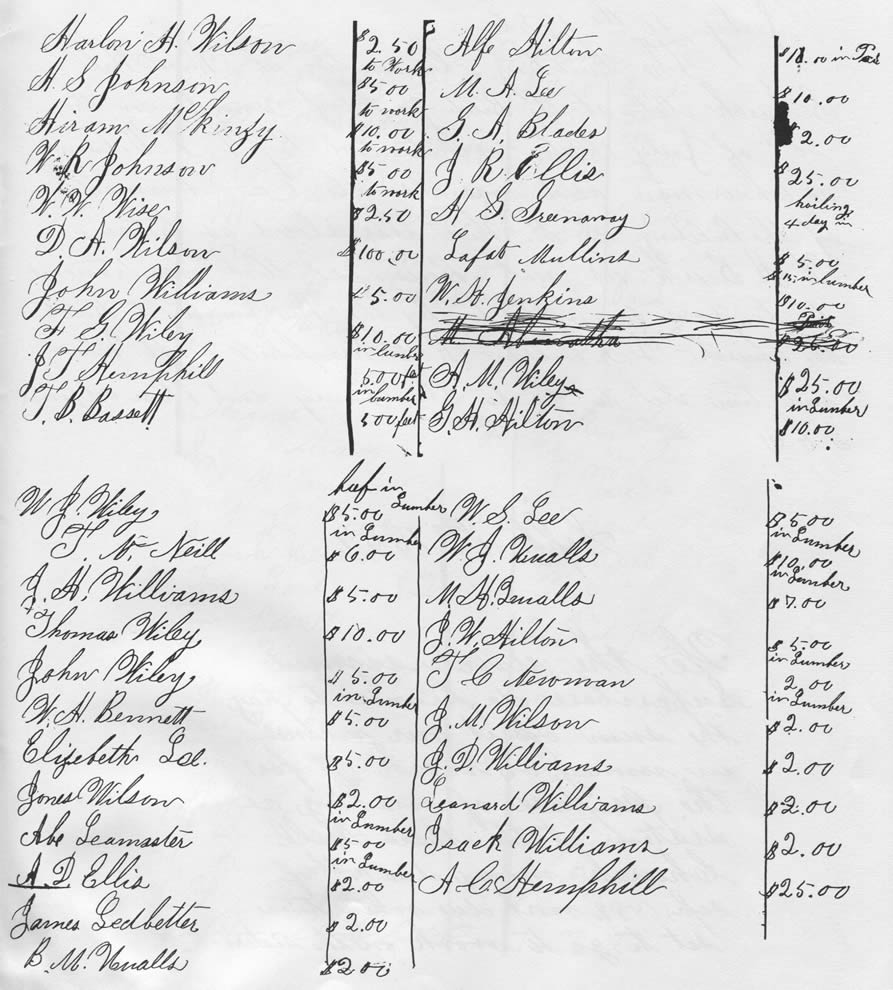 Harlon H. Wilson $2.50
to Work
H S Johnson $5.00
to work
Hiram McKinzy $10.00
to work
W. R Johnson $5.00
to work
W. W. Wise $2.50
D. A. Wilson $100.00
John Williams $5.00
F G. Wiley $10.00
J T Hemphill 500 feet
in lumber
T. B. Bassett 500 feet
Alfe Hilton $18.00 in
M. A. Lee $10.00
G. A. Blades $2.00
J R. Ellis $25.00
H G. Greenaway hailing
4 day in
Lafat Mullins $5.00
in lumber
W. H. Jenkins $10.00
M.
A. M. Wiley $25.00
in Lumber
G. H. Hilton $10.00
half in
Lumber
W J. Wiley $5.00
in Lumber
T. N. Neill $6.00
J. H. Williams $5.00
Thomas Wiley $10.00
John Wiley $5.00
in Lumber
W. H. Bennett $5.00
Elizebeth Lee. $5.00
Jones Wilson $2.00
in Lumber
Abe Leamaster $5.00
in Lumber
A D Ellis $2.00
James Ledbetter $2.00
B. M. Nualls $2.00
W. S. Lee $5.00
in Lumber
W J. Nualls $10.00
in Lumber
M. H. Nualls $7.00
J. W. Hilton $5.00
in Lumber
T C Newman 2.00
in Lumber
J. M. Wilson $2.00
J. D. Williams $2.00
Leonard Williams $2.00
Isack Williams $2.00
A C Hemphill $25.00